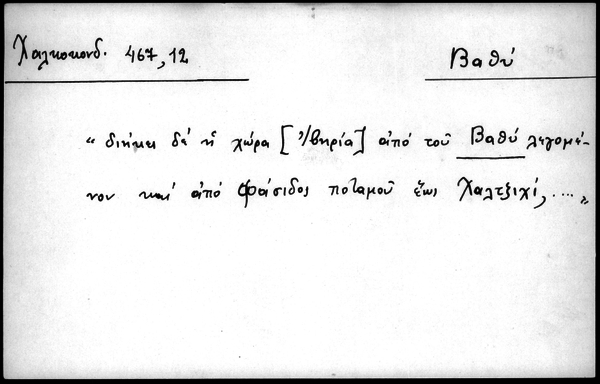 Χαλκοκονδ. 467,12
Βαθύ
"διήκει δὲ ἡ χώρα [Ἰβηρία] ἀπό τοῦ Βαθύ λεγομέ-
νου καί ἀπό Φάσιδος ποταμοῦ ἕως Χαλτζιχί, ...."